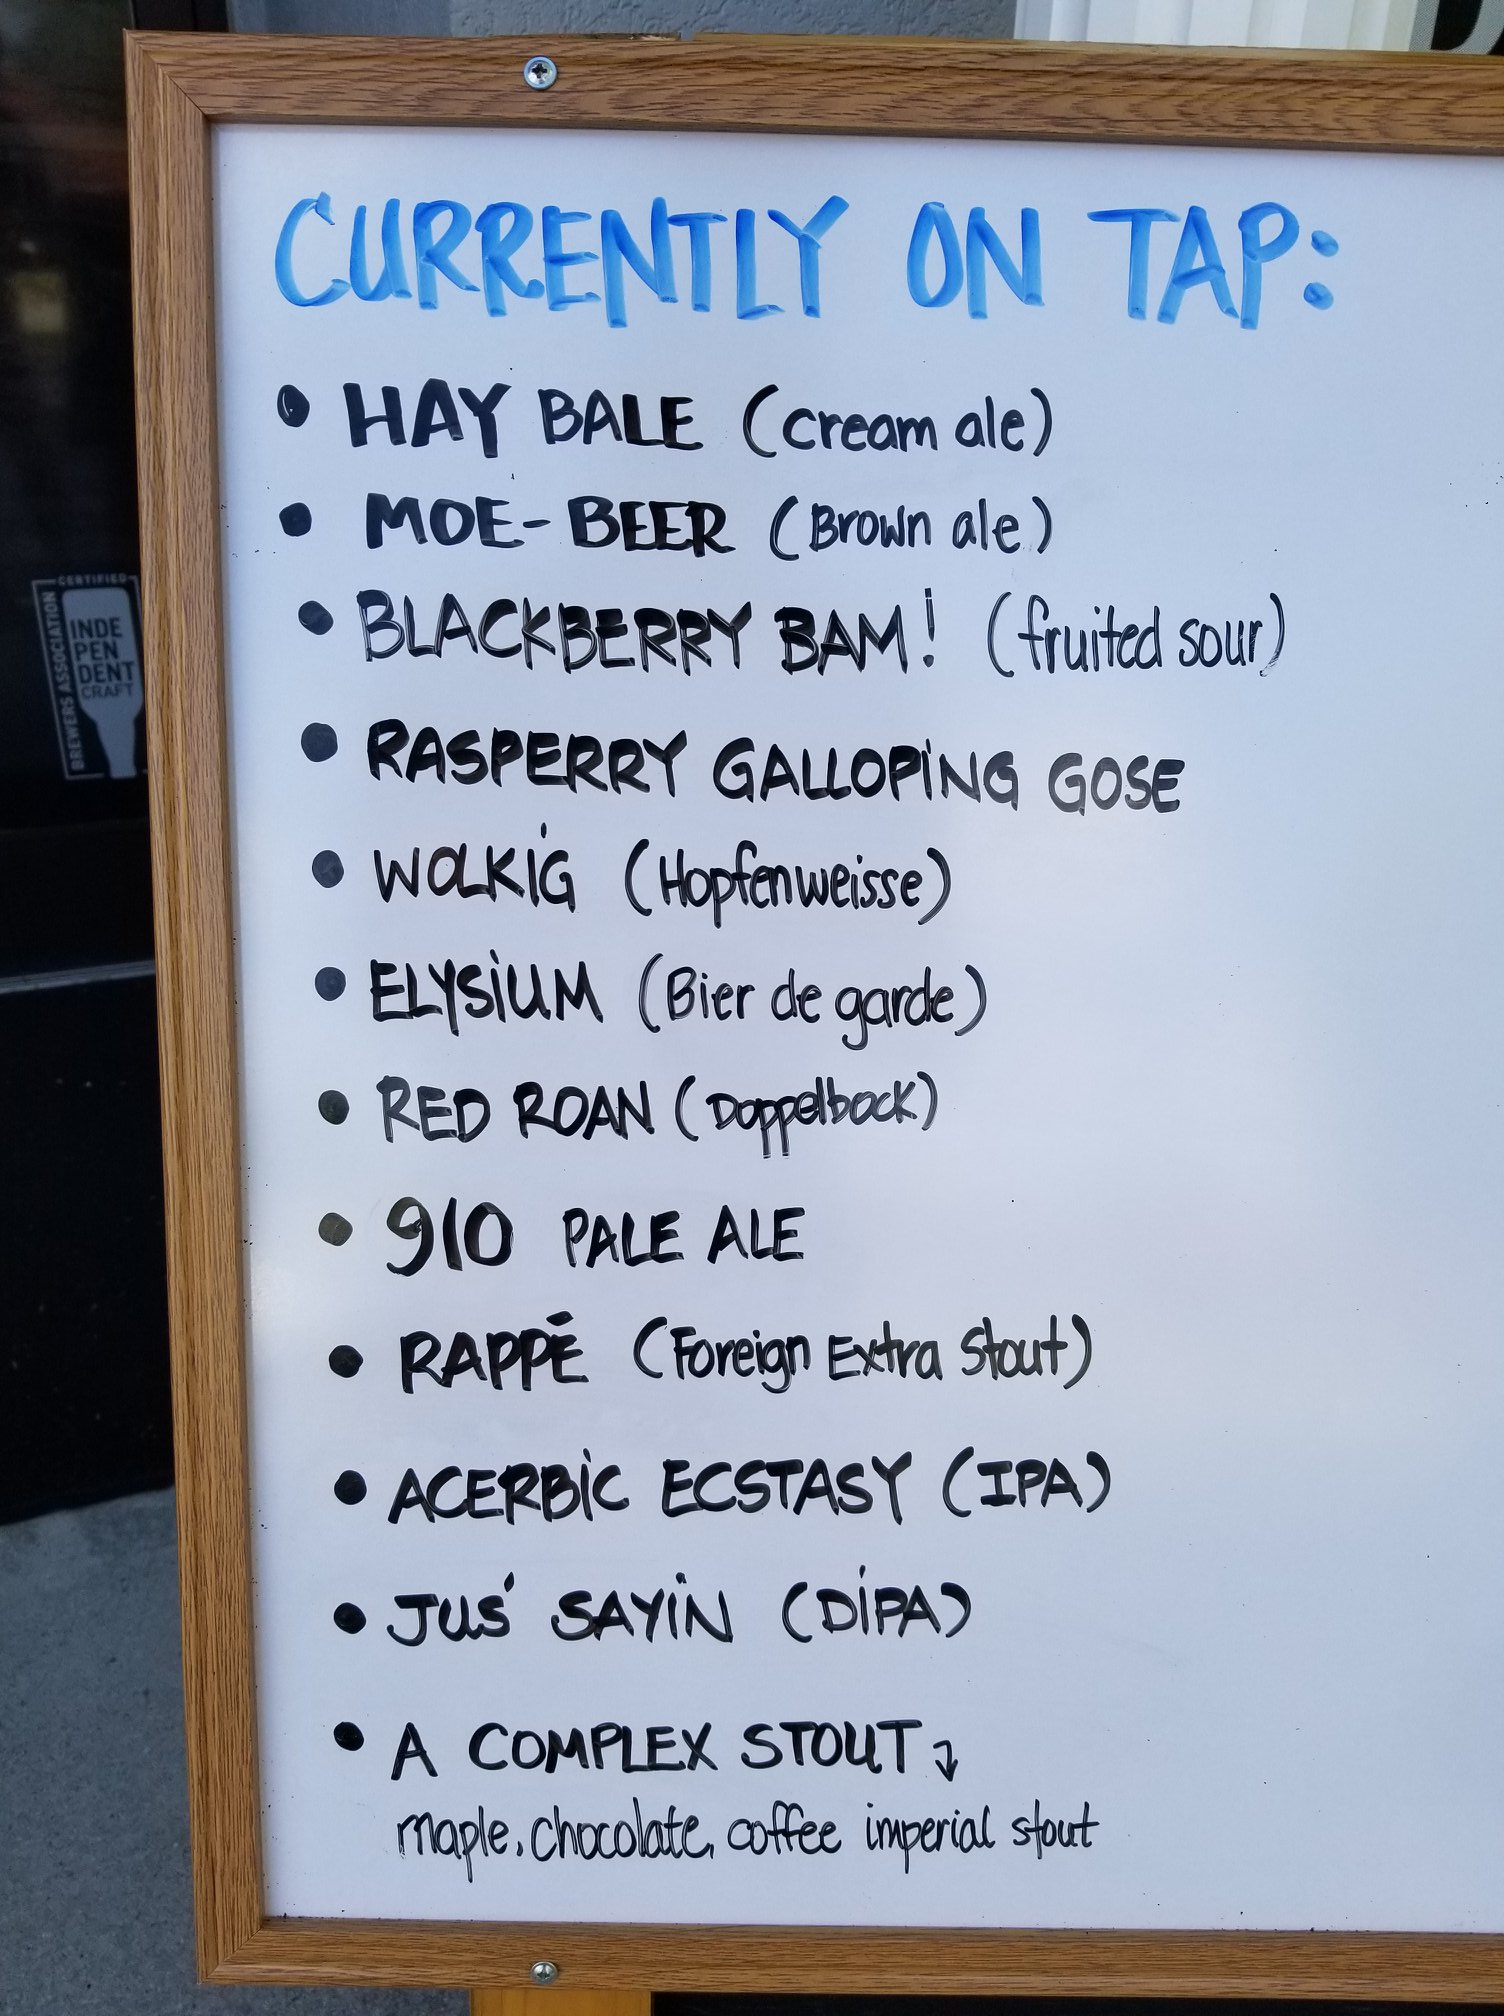 CURRENTLY ON TAP:
• HAY BALE (cream ale)
• MOE-BEER (Brown ale)
• BLACKBERRY BAM! (fruited sour)
• RASPERRY GALLOPING GOSE
• WOLKIG (Hopfenweisse)
• ELYSIUM (Bier de garde)
• RED ROAN (Doppelbock)
• 910 PALE ALE
• RAPPÉ (Foreign Extra Stout)
• ACERBIC ECSTASY (IPA)
• JUS' SAYIN (DIPA)
• A COMPLEX STOUT ↴
maple, chocolate, coffee imperial stout
CERTIFIED
BREWERS ASSOCIATION
INDE
PEN
DENT
CRAFT